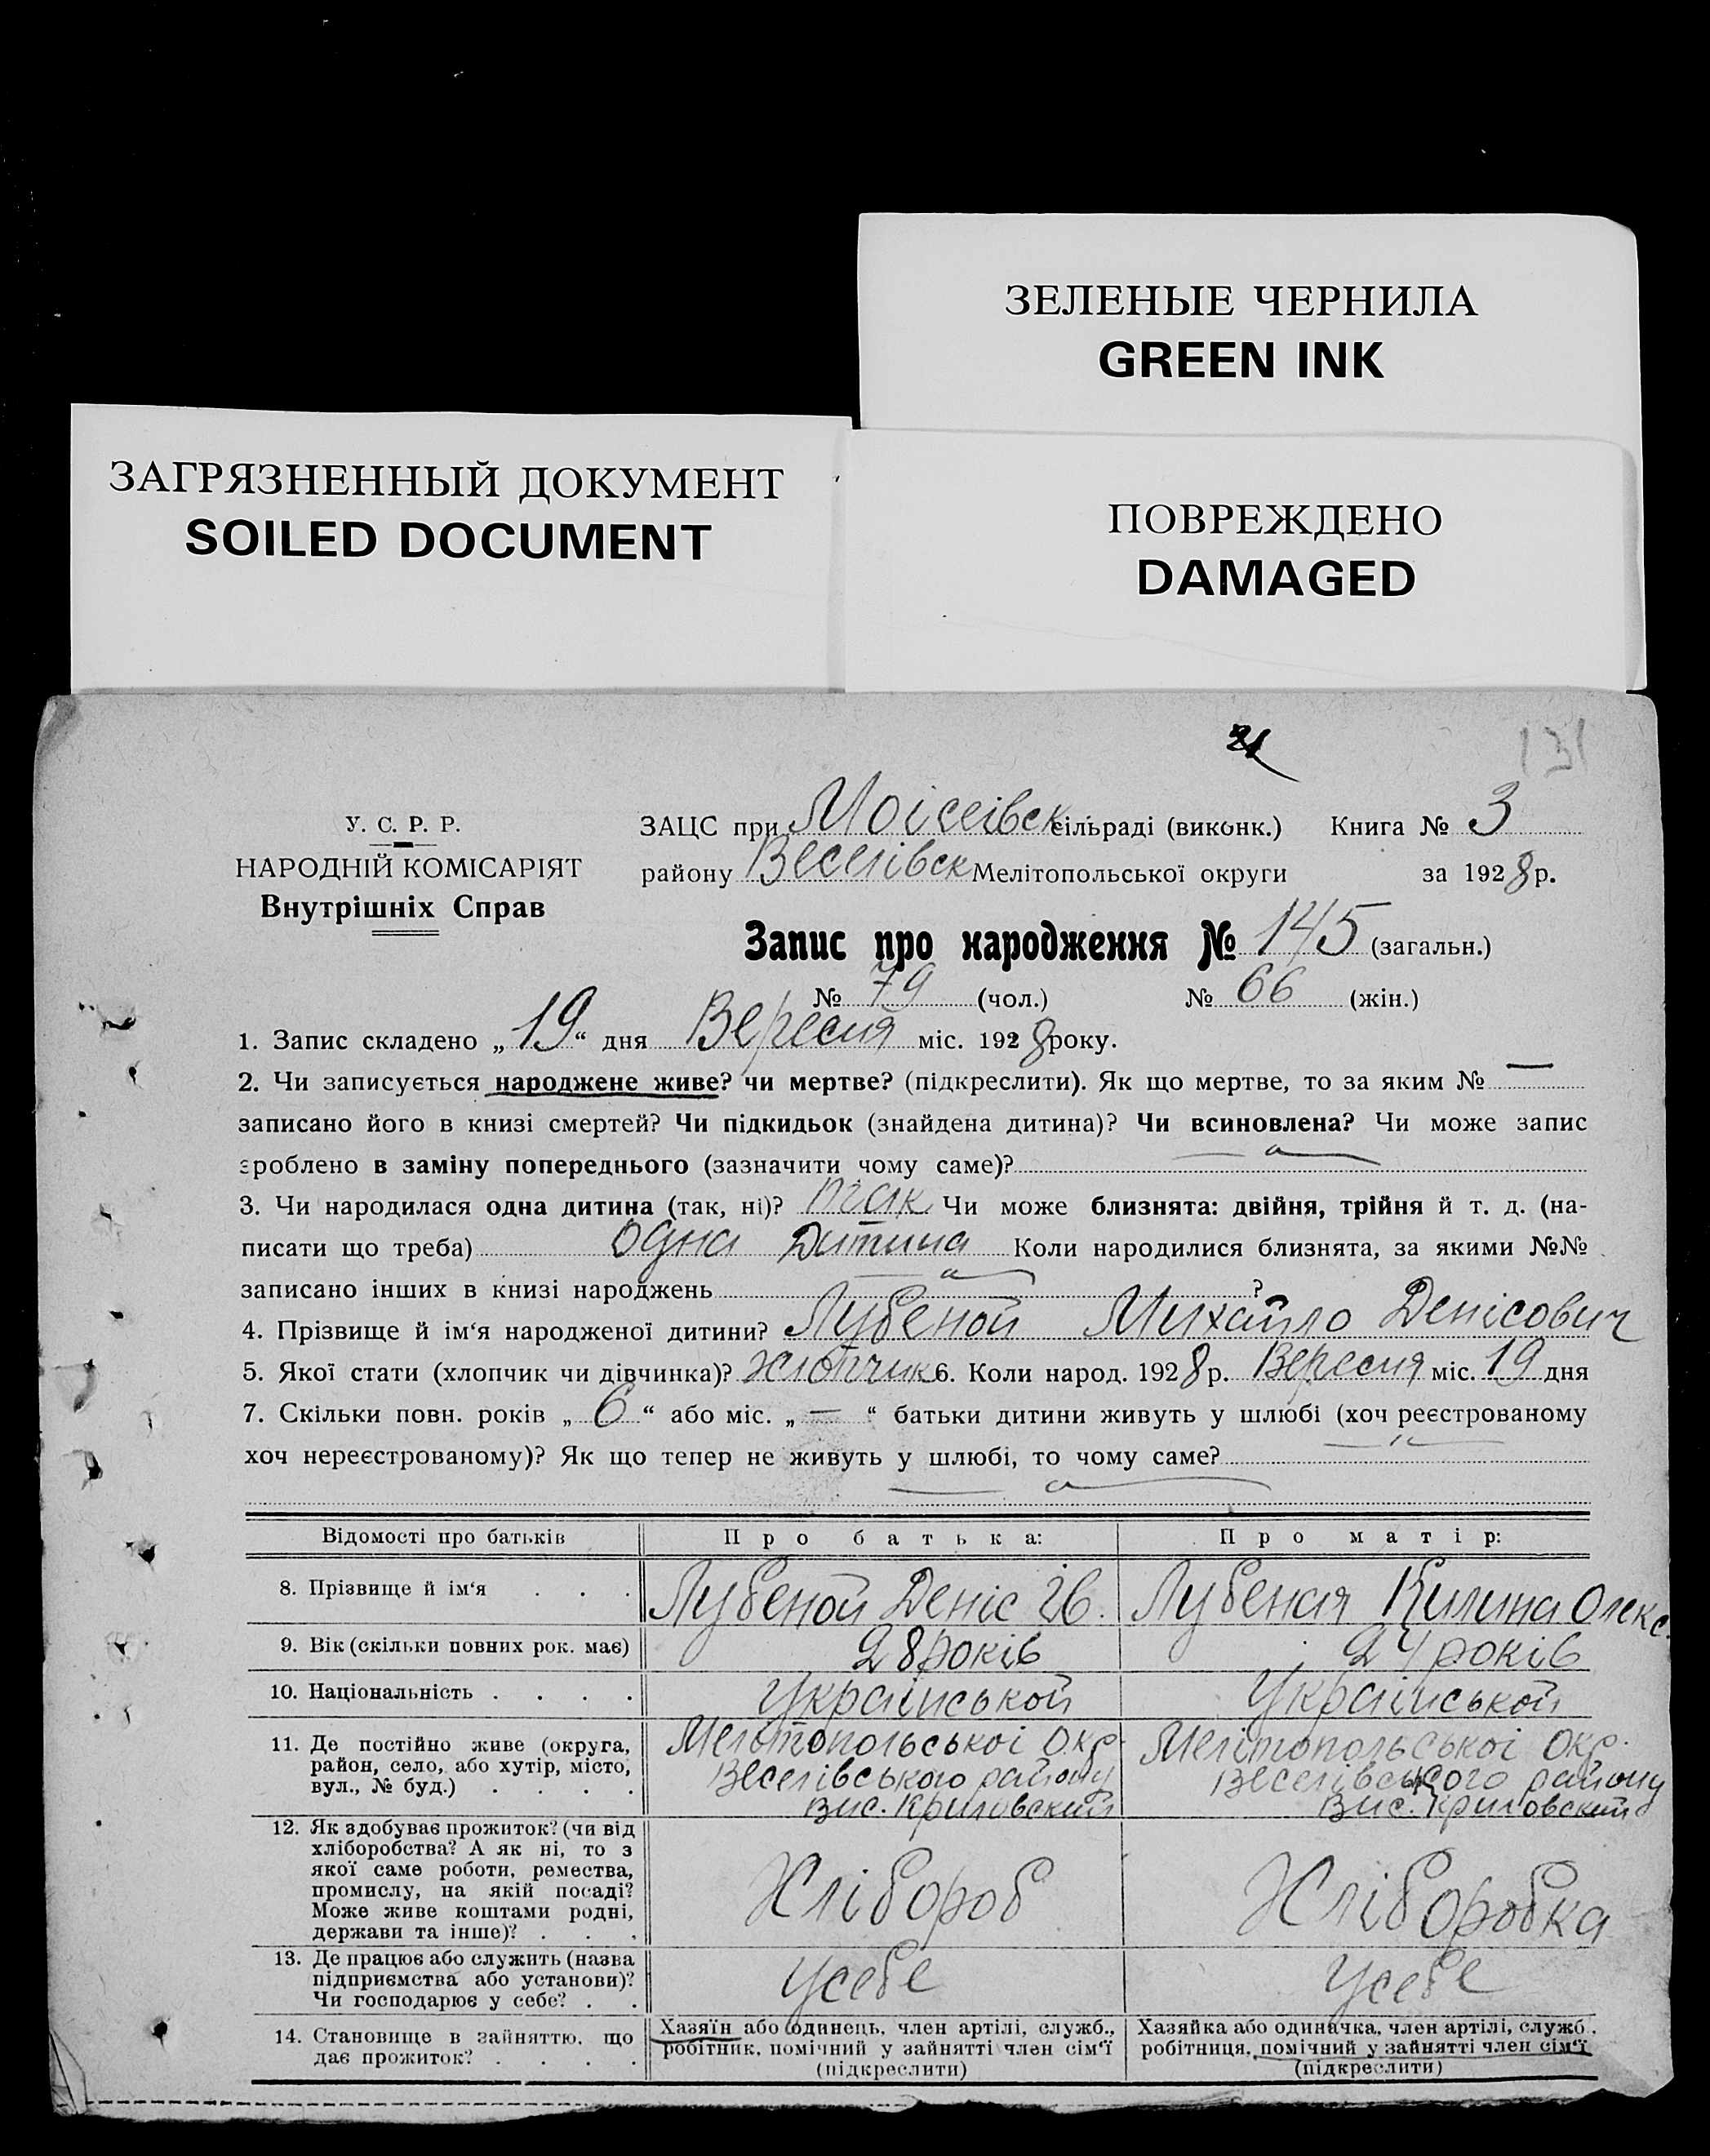 ЗЕЛЕНЫЕ ЧЕРНИЛА
GREEN INK
ЗАГРЯЗНЕННЫЙ ДОКУМЕНТ
SOILED DOCUMENT
ПОВРЕЖДЕНО
DAMAGED
21
131
У. С. Р. Р.
НАРОДНІЙ КОМІСАРІЯТ
Внутрішніх Справ
ЗАЦС при Моісеівск сільраді (виконк.) Книга № 3
району Веселівск Мелітопольської округи за 1928 р.
Запис про народження № 145 (загальн.)
№ 79 (чол.) № 66 (жін.)
1. Запис складено „19“ дня Вересня міс. 1928 року.
2. Чи записується народжене живе? чи мертве? (підкреслити). Як що мертве, то за яким № —
записано його в книзі смертей? Чи підкидьок (знайдена дитина)? Чи всиновлена? Чи може запис
зроблено в заміну попереднього (зазначити чому саме)?
3. Чи народилася одна дитина (так, ні)? так Чи може близнята: двійня, трійня й т. д. (на-
писати що треба) одна дитина Коли народилися близнята, за якими №№
записано інших в книзі народжень ?
4. Прізвище й ім‘я народженої дитини? Лубеной Михайло Денісович
5. Якої стати (хлопчик чи дівчинка)? хлопчик 6. Коли народ. 1928 р. Вересня міс. 19 дня
7. Скільки повн. років „6“ або міс. „—“ батьки дитини живуть у шлюбі (хоч реєстрованому
хоч нереєстрованому)? Як що тепер не живуть у шлюбі, то чому саме?
Відомості про батьків Про батька: Про матір:
8. Прізвище й ім‘я . . . Лубеной Деніс Ів. Лубеная Килина Олекс.
9. Вік (скільки повних рок. має) 28 років 24 років
10. Національність . . . . Украінськой Украінськой
11. Де постійно живе (округа, район, село, або хутір, місто, вул., № буд.) . . . . Мелітопольськоі Окр. Веселівського району Вис. Криловский Мелітопольськоі Окр. Веселівського району Вис. Криловский
12. Як здобуває прожиток? (чи від хліборобства? А як ні, то з якої саме роботи, ремества, промислу, на якій посаді? Може живе коштами родні, держави та інше)? . . . Хлібороб Хлiборобка
13. Де працює або служить (назва підприємства або установи)? Чи господарює у себе? . . Усебе Усебе
14. Становище в зайняттю, що дає прожиток? . . . . Хазяїн або одинець, член артілі, служб., робітник, помічний у зайнятті член сім‘ї (підкреслити) Хазяйка або одиначка, член артілі, служб., робітниця, помічний у зайнятті член сім‘ї (підкреслити)